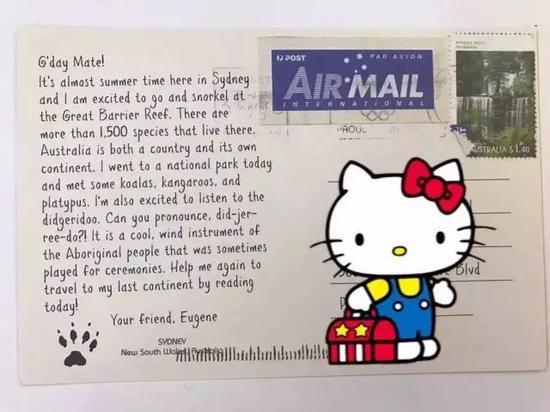 G'day Mate!
It's almost summer time here in Sydney
and I am excited to go and snorkel at
the Great Barrier Reef. There are
more than 1,500 species that live there.
Australia is both a country and its own
continent. I went to a national park today
and met some koalas, kangaroos, and
platypus. I'm also excited to listen to the
didgeridoo. Can you pronounce, did-jer-
ree-do?! It is a cool, wind instrument of
the Aboriginal people that was sometimes
played for ceremonies. Help me again to
travel to my last continent by reading
today!
Your friend, Eugene
SYDNEY
New South Wales Australia
POST PAR AVION
AIR MAIL
INTERNATIONAL
AUSTRALIA $1.40
Blvd